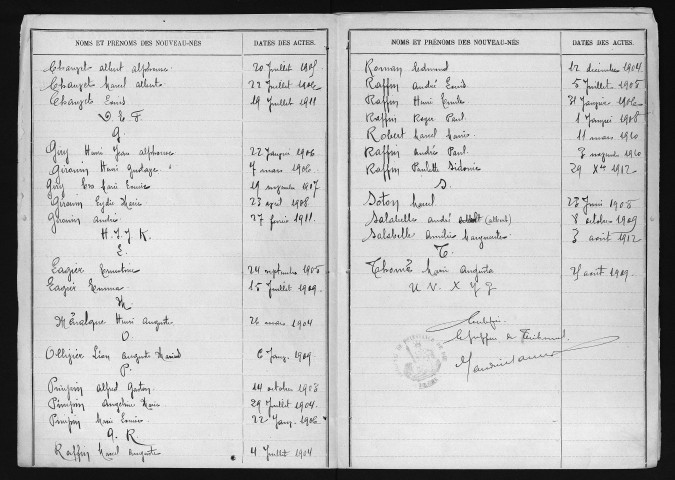 NOMS ET PRÉNOMS DES NOUVEAU-NÉS DATES DES ACTES.
Changet Albert Alphonse 20 Juillet 1905
Changet Marcel Albert 22 Juillet 1906
Changet Louis 19 Juillet 1911
D. E. F.
G.
Giry Henri Jean Alphonse 22 Janvier 1906
Girouin Henri Gustave 7 mars 1906
Giry Marie Louise 19 novembre 1907
Girouin Marie 23 avril 1908
Girouin André 27 février 1911.
H. I. J. K.
L.
Eagier 24 septembre 1905
Eagier Emma 15 Juillet 1909.
M.
Henri Auguste 26 mars 1904
O.
Ollivier Léon Auguste 6 Janv. 1909
P.
Pimpin Alfred Gaston 14 octobre 1903
Pimpin Angeline Marie 29 Juillet 1904.
Pimpin Marie Louise 22 Janv. 1906.
Q. R
Raffin Marcel Auguste 4 Juillet 1904
NOMS ET PRÉNOMS DES NOUVEAU-NÉS DATES DES ACTES.
Roman Edmond 12 décembre 1904.
Raffin André Louis 5 Juillet 1905
Raffin Henri Emile 31 Janvier 1906
Raffin Roger Paul 1 Janvier 1908
Robert Marcel Marius 11 mars 1910
Raffin André Paul. 3 novembre 1910
Raffin Paulette Sidonie 29 Xbre 1912
S.
Soton Marcel 23 Juin 1905
Salabelle André (albert) 8 octobre 1909
Salabelle Amélie Marguerite 3 août 1912
T.
Thomé Marie Augusta 21 août 1909.
U V. X Y Z
Certifié.
Le greffier du Tribunal